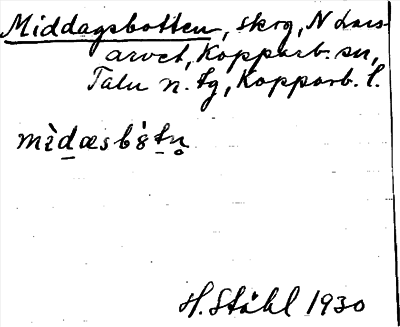 Middagsbotten, skrg, N Lars-
arvet, Kopparb. sn,
Falu n. tg, Kopparb. l.
mìdæsbȯ̀tn̥
H. Ståhl 1930